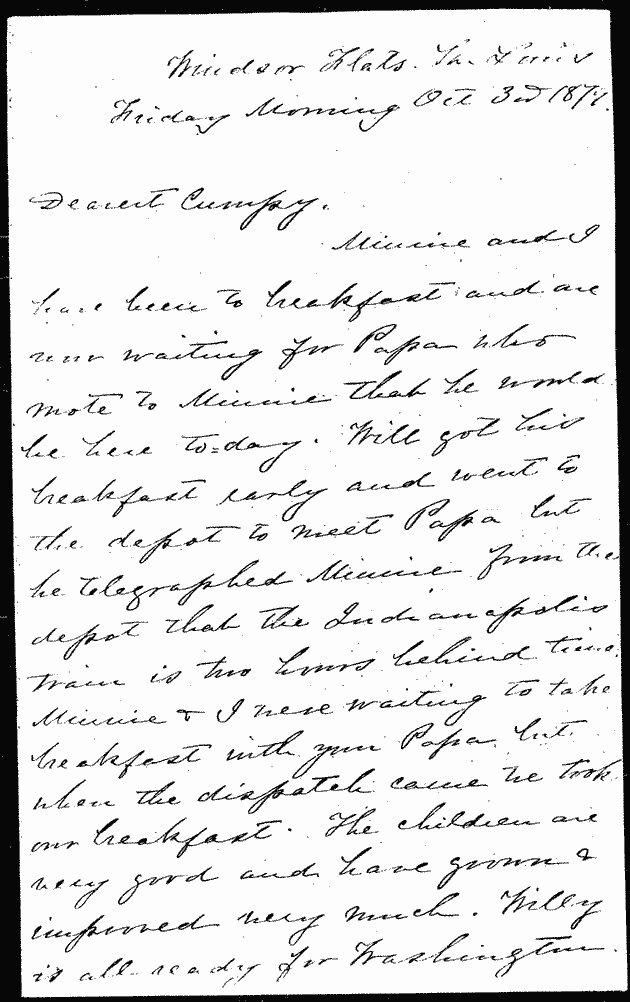 Windsor Flats. St. Louis
Friday Morning Oct 3rd 1879.
Dearest Cumpy.
Minnie and I
have been to breakfast and are
now waiting for Papa who
wrote to Minnie that he would
be here to=day. Will got his
breakfast early and went to
the depot to meet Papa but
he telegraphed Minnie from the
depot that the Indianapolis
train is two hours behind time.
Minnie & I were waiting to take
breakfast with your Papa but
when the dispatch came we took
our breakfast. The children are
very good and have grown &
improved very much. Willy
is all ready for Washington.